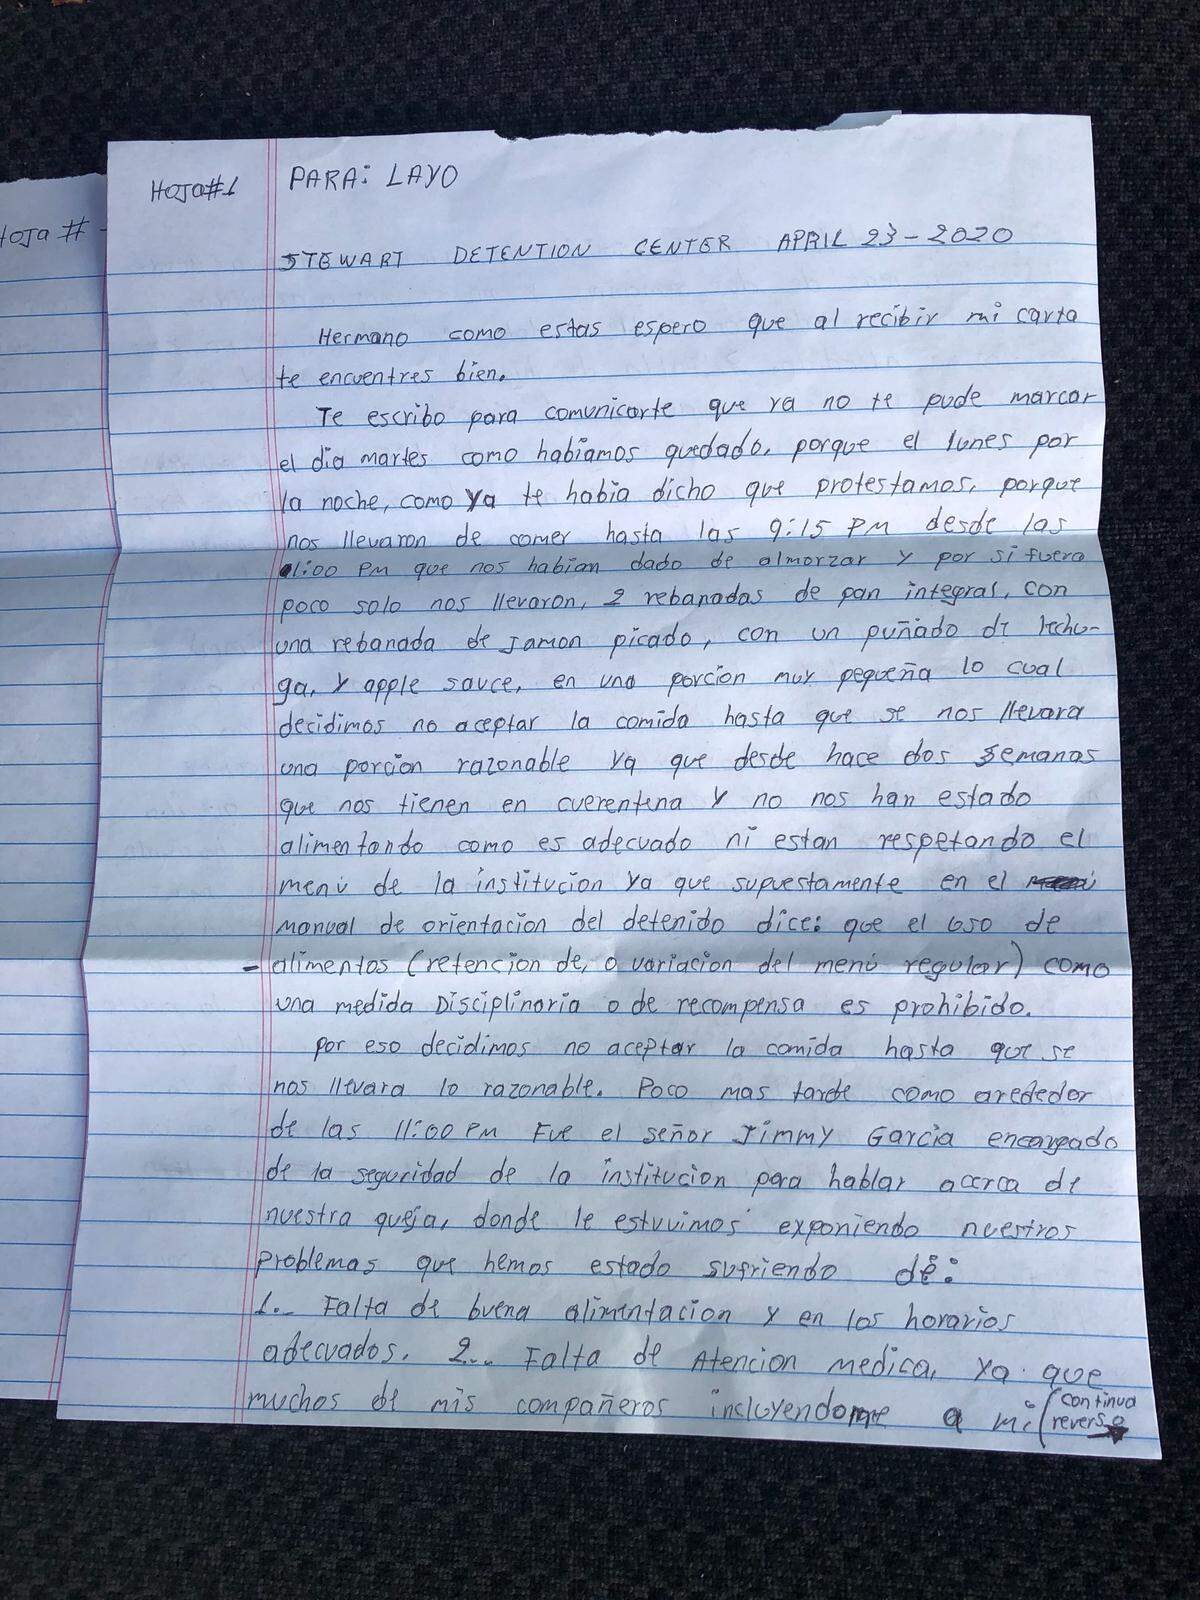 HOJA#1
PARA: LAYO
STEWART DETENTION CENTER APRIL 23-2020
Hermano como estas espero que al recibir mi carta
te encuentres bien.
Te escribo para comunicarte que ya no te pude marcar
el dia martes como habiamos quedado, porque el lunes por
la noche, como ya te habia dicho que protestamos, porque
nos llevaron de comer hasta las 9:15 PM desde las
1:00 PM que nos habian dado de almorzar y por si fuera
poco solo nos llevaron, 2 rebanadas de pan integral, con
una rebanada de Jamon picado, con un puñado de lechu-
ga, y apple sauce, en una porcion muy pequeña lo cual
decidimos no aceptar la comida hasta que se nos llevara
una porcion razonable ya que desde hace dos semanas
que nos tienen en cuerentena y no nos han estado
alimentando como es adecuado ni estan respetando el
menú de la institucion ya que supuestamente en el
manual de orientacion del detenido dice: que el uso de
- alimentos (retencion de, o variacion del menú regular) como
una medida Disciplinaria o de recompensa es prohibido.
por eso decidimos no aceptar la comida hasta que se
nos llevara lo razonable. Poco mas tarde como arededor
de las 11:00 PM Fue el señor Jimmy Garcia encargado
de la seguridad de la institucion para hablar acerca de
nuestra queja, donde le estuvimos exponiendo nuestros
problemas que hemos estado sufriendo de:
1.. Falta de buena alimentacion y en los horarios
adecuados. 2... Falta de Atencion medica, ya que
muchos de mis compañeros incluyendome a mi (continua
reverso
HOJA #